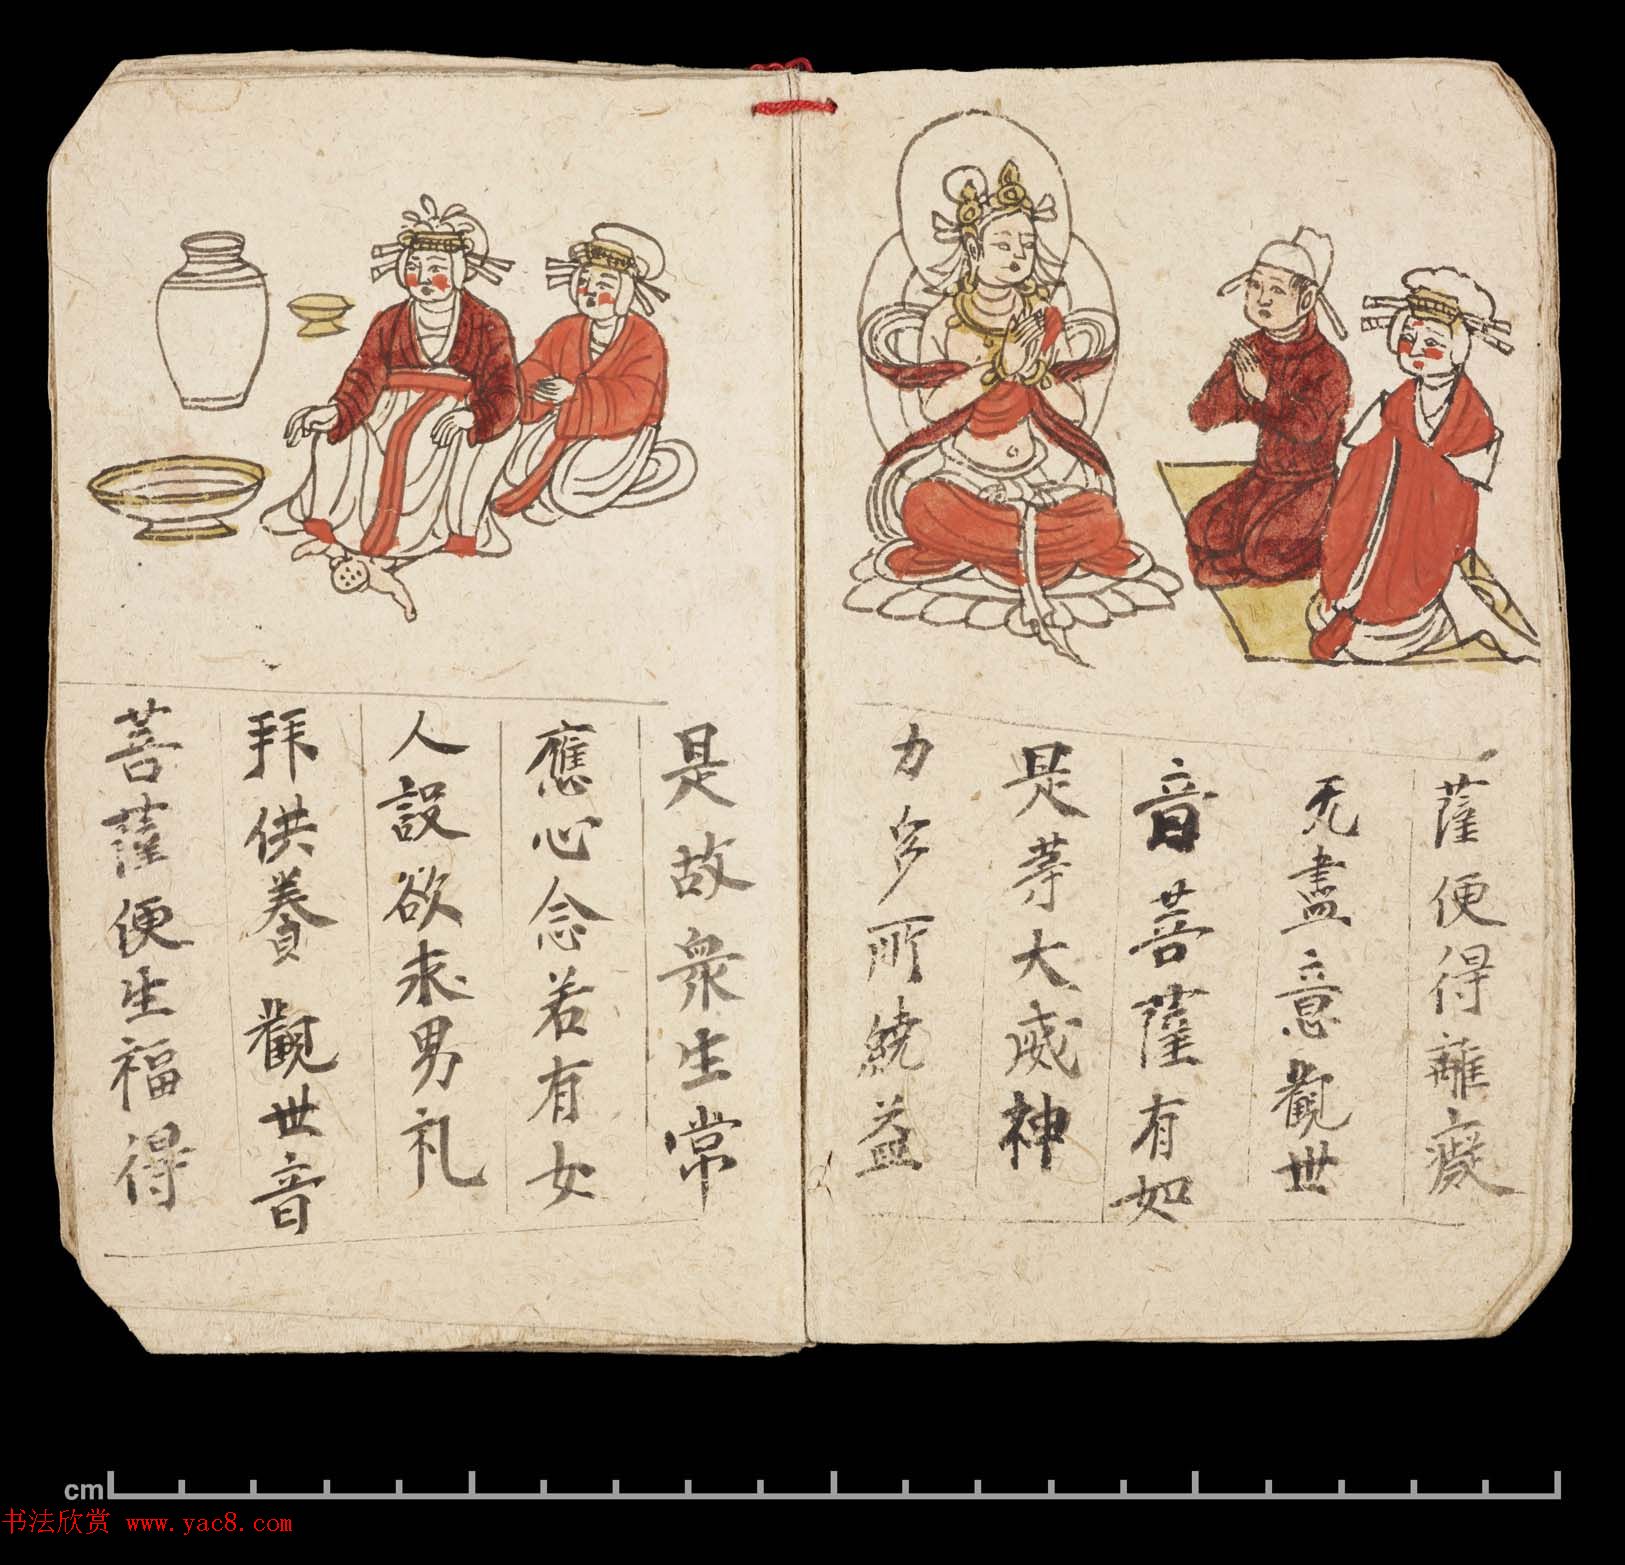 薩便得離癡
无盡意觀世
音菩薩有如
是等大威神
力多所繞益
是故衆生常
應心念若有女
人設欲求男礼
拜供養觀世音
菩薩便生福得
cm
书法欣赏 www.yac8.com